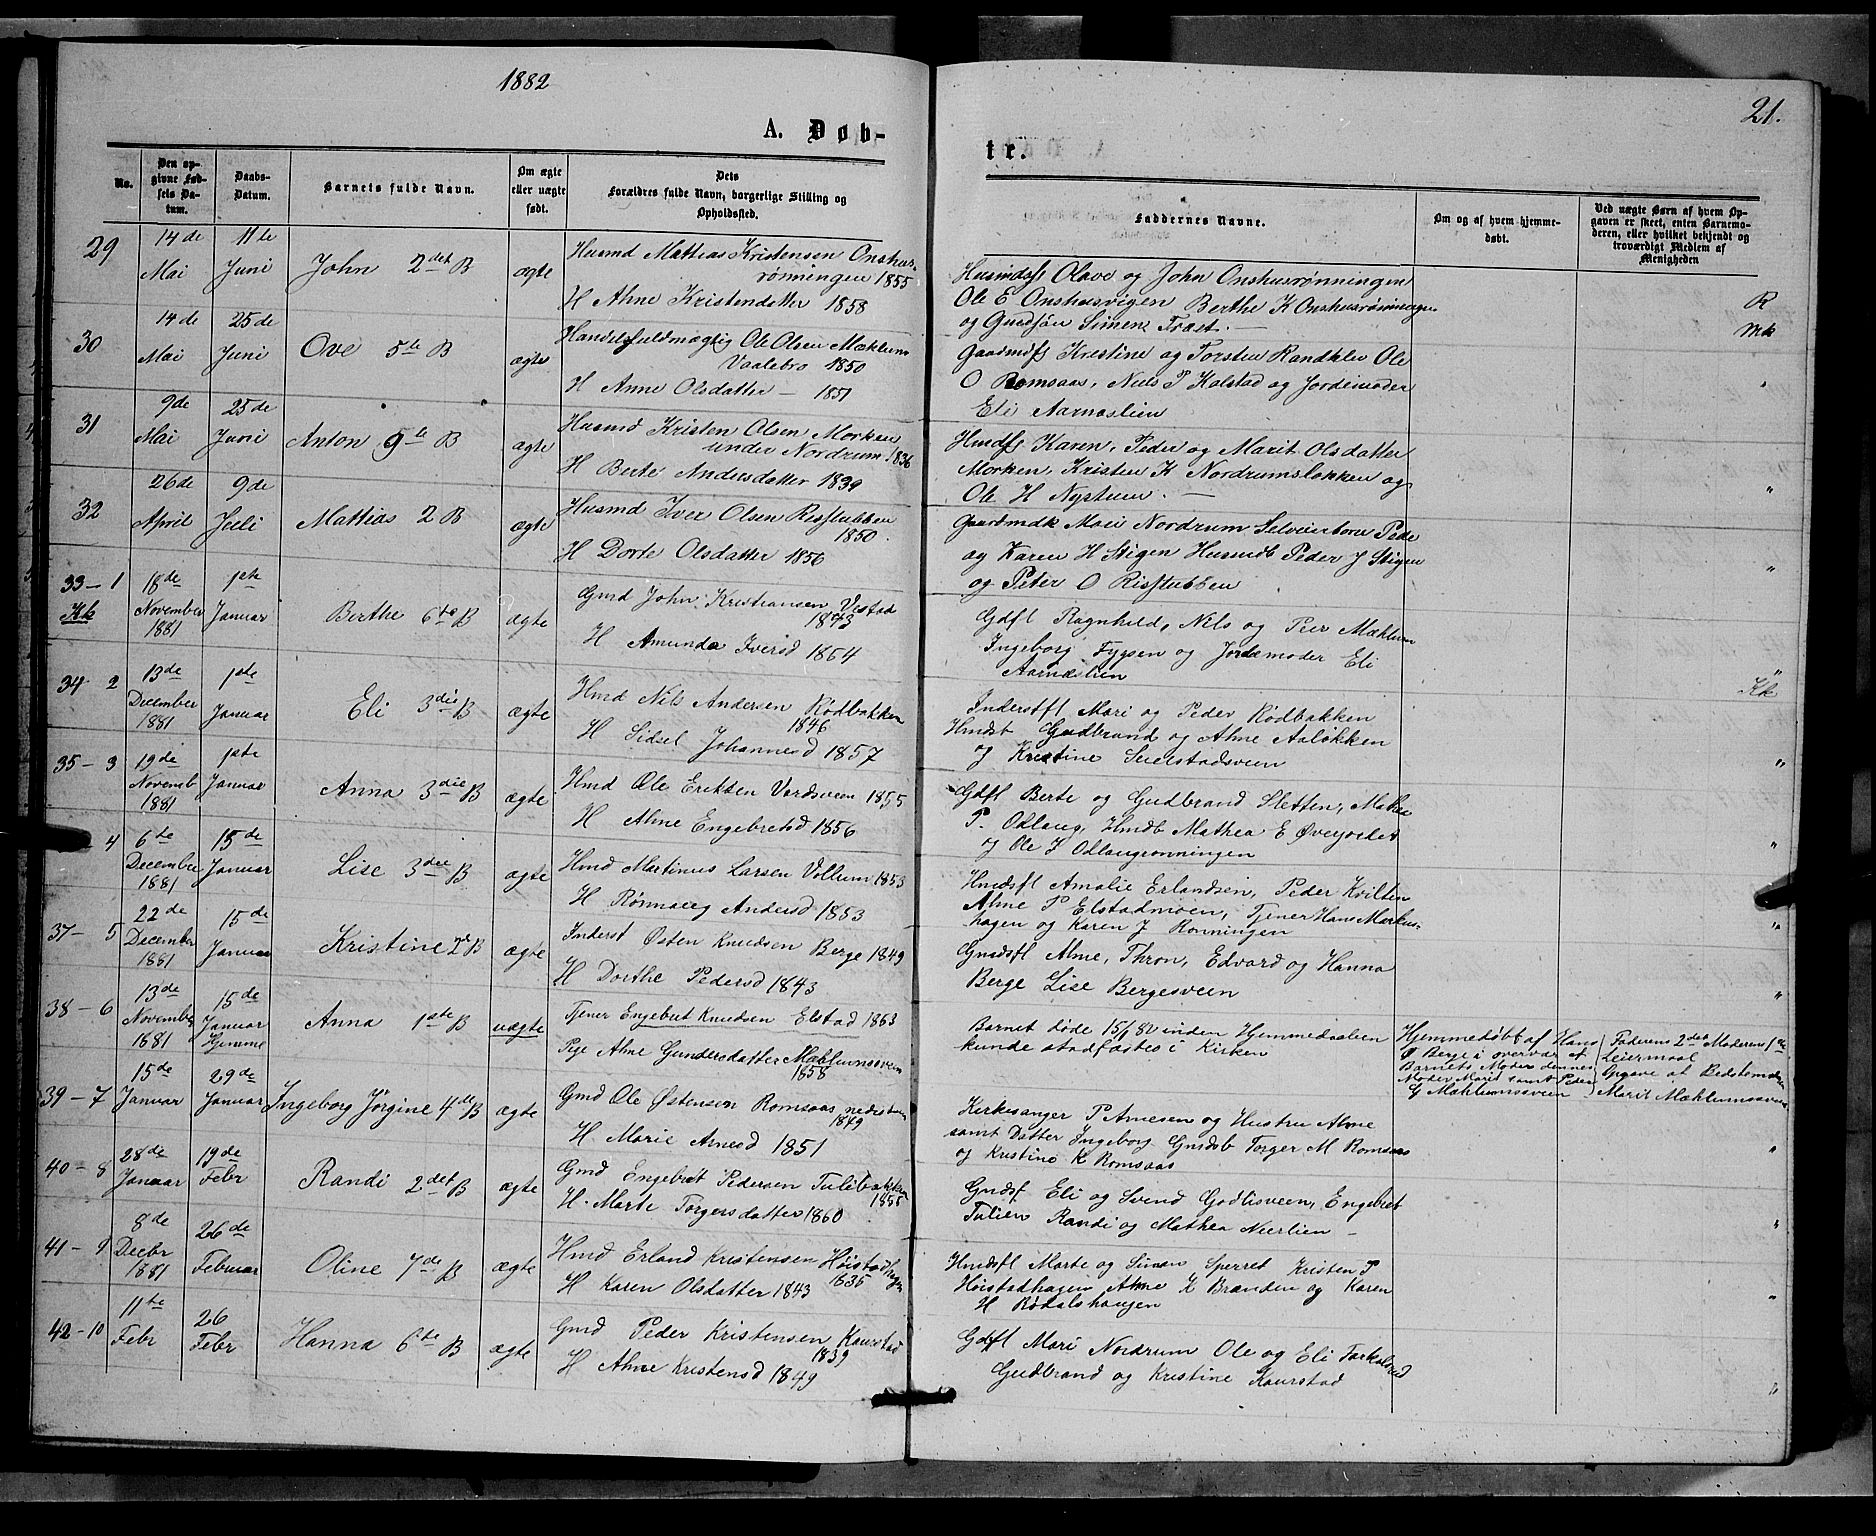 1882
21.
A. Døb-
tr.
No.
Den op-
givne Fød-
sels Da-
tum.
Daabs-
Datum.
Barnets fulde Navn.
Om ægte
eller uægte
født.
Dets
Forældres fulde Navn, borgerlige Stilling og
Opholdssted.
Faddernes Navne.
Om og af hvem hjemme-
døbt.
Ved uægte Børn af hvem Op-
gaven er skeet, enten Barnemo-
deren, eller hvilket bekjendt og
troværdigt Medlem af
Menigheden
29
14de
Mai
11te
Juni
John 2det B
ægte
Husmd Mattias Kristensen Onshus-
rønningen 1855
H Ahne Kristendatter 1858
Husmdsf Olave og John Onshusrønningen
Ole E Onshusvigen Berthe K Onshusrønningen
og Gudsjøn Simens Trøst.
R
30
14de
Mai
25de
Juni
Ove 5te B
ægte
Handelsfuldmægtig Ole Olsen Mæhlum
Vaalebro 1850
H Anne Olsdatter — 1851
Mk
Gaardmfl Kristine og Torsten Randklev Ole
O Romsaas, Niels P Kalstad og Jordemoder
Eli Aarnæslien
31
9de
Mai
25de
Juni
Anton 9te B
ægte
Husmd Kristen Olsen Morken
under Nordrum 1836
H Berte Andersdatter 1839
Hmdfl Karen, Peder og Marit Olsdatter
Morken, Kristen K Nordrumsløkken og
Ole H Nystuen.
"
32
26de
April
9de
Juli
Mattias 2 B
ægte
Husmd Iver Olsen Risstubben
1850.
H Dorte Olsdatter 1856
Gaardmdk Mari Nordrum Selveierborn Pede
og Karen H Stigen Husmdb Peder J Stigen
og Peter O Risstubben
"
33 - 1
Kk
18de
November
1881
1ste
Januar
Berthe 6te B
ægte
Gmd John Kristiansen Vestad
1843
H Amunda Iversd 1854
Gdfl Ragnhild, Nils og Peer Mæhlum
Ingeborg Fygsen og Jordemoder Eli
Aarnæslien
"
34 2
13de
December
1881
1ste
Januar
Eli 3die B
ægte
Hmd Nils Andersen Rødbakken
1846
H Sidsel Johannesd 1857
Kk
Inderstfl Mari og Peder Rødbakken
Hmdsb Gudbrand og Ahne Aaløkken
og Kristine Seielstadsveen
"
35 - 3
19de
Novemb
1881
1ste
Januar
Anna 3die B
ægte
Hmd Ole Eriksen Vordsveen 1855
H Ahne Engebretsd 1856
Gdfl Berte og Gudbrand Sletten, Mathea
P. Odlaug, Hmdb Mathea E Øverjordet
og Ole J Odlaugrønningen
"
4
6te
December
1881
15de
Januar
Lise 3die B
ægte
Hmd Martinus Larsen Vollum 1853
H Rønnaug Andersd 1853
Hmdsfl Amalie Erlandsen, Peder Kvilten
Ahne P Elstadmoen, Tjener Hans Mørkus-
hagen og Karen J Rønningen
"
37 - 5
22de
December
1881
15de
Januar
Kristine 2det B
ægte
Inderst Østen Knudsen Berge 1849
H Dorthe Pedersd 1843
Gmdsfl Ahne, Thron, Edvard og Hanna
Berge Lise Bergesveen
"
38 - 6
13de
November
1881
15de
Januar
Hjemme
Anna 1ste B
uægte
Tjener Engebret Knudsen Elstad 1863
Pige Ahne Gundersdatter Mæhlumsveen
1858
Barnet døde 15/1 82 inden Hjemmedaaben
kunde stadfæstes i Kirken
Hjemmedøbt af Hans
O Berge i overvær af
Barnets Moder dennes
Moder Marit samt Peder
G Mæhlumsveen
Faderens 2det Moderens 1ste
Leiermaal
Opgave af Bedstemoderen
Marit Mæhlumsveen
39 - 7
15de
Januar
29de
Januar
Ingeborg Jørgine 4de B
ægte
Gmd Ole Østensen Romsaas nedistuen
1849
H Marie Arnesd 1851
Kirkesanger P Arnesen og Hustru Ahne
samt Datter Ingeborg Gmdsb Torger M Romsaas
og Kristine K Romsaas
"
40 - 8
28de
Januar
19de
Febr
Randi 2det B
ægte
Gmd Engebret Pedersen Tulibakken
1855
H. Marte Torgersdatter 1860
Gmdsf Eli og Svend Godlisveen, Engebret
Tulien Randi og Mathea Neerlien —
"
41 - 9
8de
Decbr
1881
26de
Februar
Oline 7de B
ægte
Hmd Erland Kristensen Høistadhagen
1835
H Karen Olsdatter 1843
Hmdsfl Marte og Simen Sperret Kristen P
Høistadhagen Ahne K Branden og Karen
H Rødalshaugen
"
42-10
11te
Febr
26
Febr
Hanna 6te B
ægte
Gmd Peder Kristensen Kaurstad
1839
H Ahne Kristensd 1849
Gdfl Mari Nordrum Ole og Eli Torkalsrud
Gudbrand og Kristine Kaurstad
"